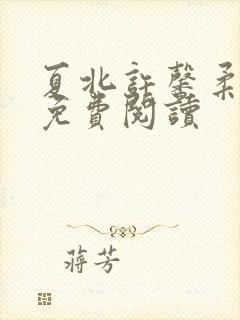 夏北許馨柔
免費閱讀
蔣芳